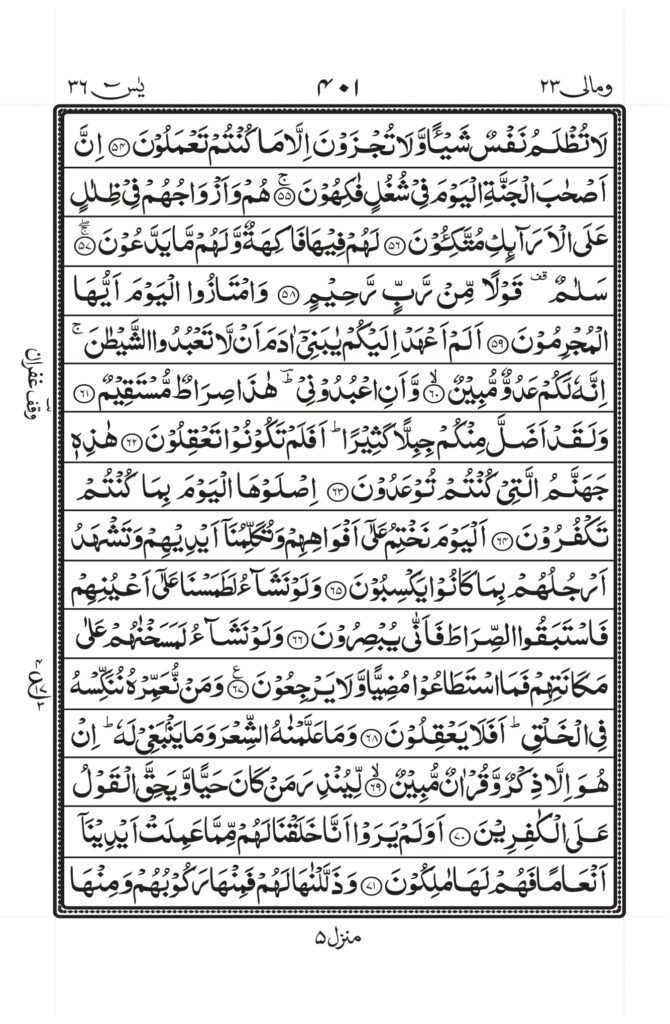 ومالی ٢٣ ۴۰۱ یٰسٓ ٣٦
لَا تُظْلَمُ نَفْسٌ شَيْـًٔا وَّلَا تُجْزَوْنَ اِلَّا مَا كُنْتُمْ تَعْمَلُوْنَ ﴿۵۴﴾ اِنَّ
اَصْحٰبَ الْجَنَّةِ الْيَوْمَ فِيْ شُغُلٍ فٰكِهُوْنَ ۚ﴿۵۵﴾ هُمْ وَاَزْوَاجُهُمْ فِيْ ظِلٰلٍ
عَلَى الْاَرَآئِكِ مُتَّكِـُٔوْنَ ﴿۵۶﴾ لَهُمْ فِيْهَا فَاكِهَةٌ وَّلَهُمْ مَّا يَدَّعُوْنَ ۚۖ﴿۵۷﴾
سَلٰمٌ ۟قف قَوْلًا مِّنْ رَّبٍّ رَّحِيْمٍ ﴿۵۸﴾ وَامْتَازُوا الْيَوْمَ اَيُّهَا
الْمُجْرِمُوْنَ ﴿۵۹﴾ اَلَمْ اَعْهَدْ اِلَيْكُمْ يٰبَنِيْٓ اٰدَمَ اَنْ لَّا تَعْبُدُوا الشَّيْطٰنَ ۚ
اِنَّهٗ لَكُمْ عَدُوٌّ مُّبِيْنٌ ۙ﴿۶۰﴾ وَّاَنِ اعْبُدُوْنِيْ ؕؔ هٰذَا صِرَاطٌ مُّسْتَقِيْمٌ ﴿۶۱﴾
وَلَقَدْ اَضَلَّ مِنْكُمْ جِبِلًّا كَثِيْرًا ؕ اَفَلَمْ تَكُوْنُوْا تَعْقِلُوْنَ ﴿۶۲﴾ هٰذِهٖ
جَهَنَّمُ الَّتِيْ كُنْتُمْ تُوْعَدُوْنَ ﴿۶۳﴾ اِصْلَوْهَا الْيَوْمَ بِمَا كُنْتُمْ
تَكْفُرُوْنَ ﴿۶۴﴾ اَلْيَوْمَ نَخْتِمُ عَلٰٓى اَفْوَاهِهِمْ وَتُكَلِّمُنَآ اَيْدِيْهِمْ وَتَشْهَدُ
اَرْجُلُهُمْ بِمَا كَانُوْا يَكْسِبُوْنَ ﴿۶۵﴾ وَلَوْ نَشَآءُ لَطَمَسْنَا عَلٰٓى اَعْيُنِهِمْ
فَاسْتَبَقُوا الصِّرَاطَ فَاَنّٰى يُبْصِرُوْنَ ﴿۶۶﴾ وَلَوْ نَشَآءُ لَمَسَخْنٰهُمْ عَلٰى
مَكَانَتِهِمْ فَمَا اسْتَطَاعُوْا مُضِيًّا وَّلَا يَرْجِعُوْنَ ࣖ﴿۶۷﴾ وَمَنْ نُّعَمِّرْهُ نُنَكِّسْهُ
فِي الْخَلْقِ ؕ اَفَلَا يَعْقِلُوْنَ ﴿۶۸﴾ وَمَا عَلَّمْنٰهُ الشِّعْرَ وَمَا يَنْۢبَغِيْ لَهٗ ؕ اِنْ
هُوَ اِلَّا ذِكْرٌ وَّقُرْاٰنٌ مُّبِيْنٌ ۙ﴿۶۹﴾ لِّيُنْذِرَ مَنْ كَانَ حَيًّا وَّيَحِقَّ الْقَوْلُ
عَلَى الْكٰفِرِيْنَ ﴿۷۰﴾ اَوَلَمْ يَرَوْا اَنَّا خَلَقْنَا لَهُمْ مِّمَّا عَمِلَتْ اَيْدِيْنَآ
اَنْعَامًا فَهُمْ لَهَا مٰلِكُوْنَ ﴿۷۱﴾ وَذَلَّلْنٰهَا لَهُمْ فَمِنْهَا رَكُوْبُهُمْ وَمِنْهَا
وقف غفران
منزل ۵